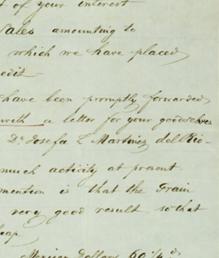 of your interest
Sales amounting to
which we have placed
edit
have been promptly forwarded
with a letter for your goodselves
Da. Josefa L Martinez del Rio
much activity at present
mention is that the Train
very good result so that
eap
Mexican Dollars 60